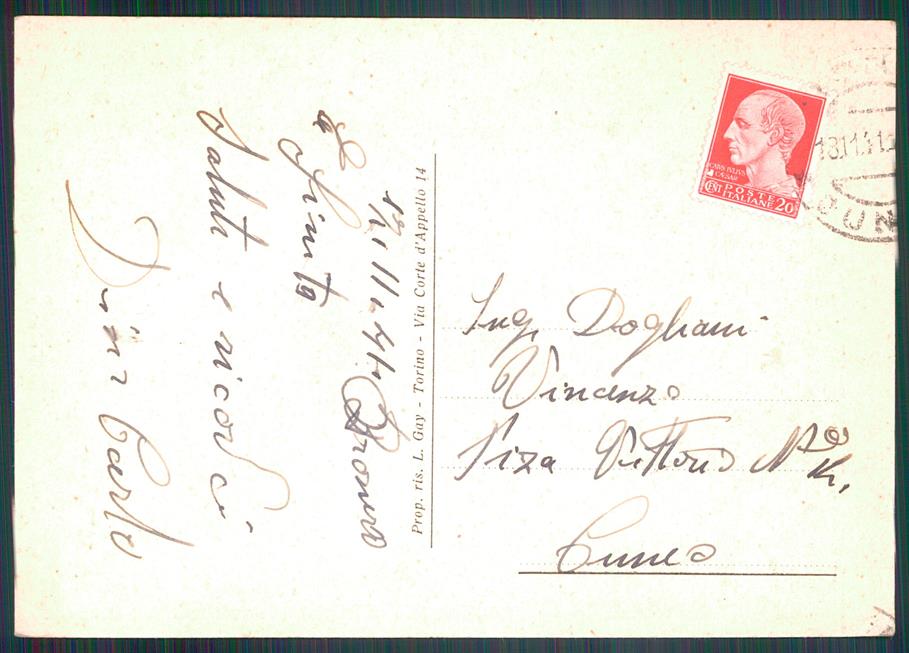 17.11.41.
Saluti e ricordi
Dina Carlo
Prop. ris. L. Gay - Torino - Via Corte d'Appello 14
CAIVS IVLIVS
CAESAR
CENT POSTE
ITALIANE 20
18.11.41
CUN
Ing. Dogliani
Vincenzo
Vittorio
Cuneo